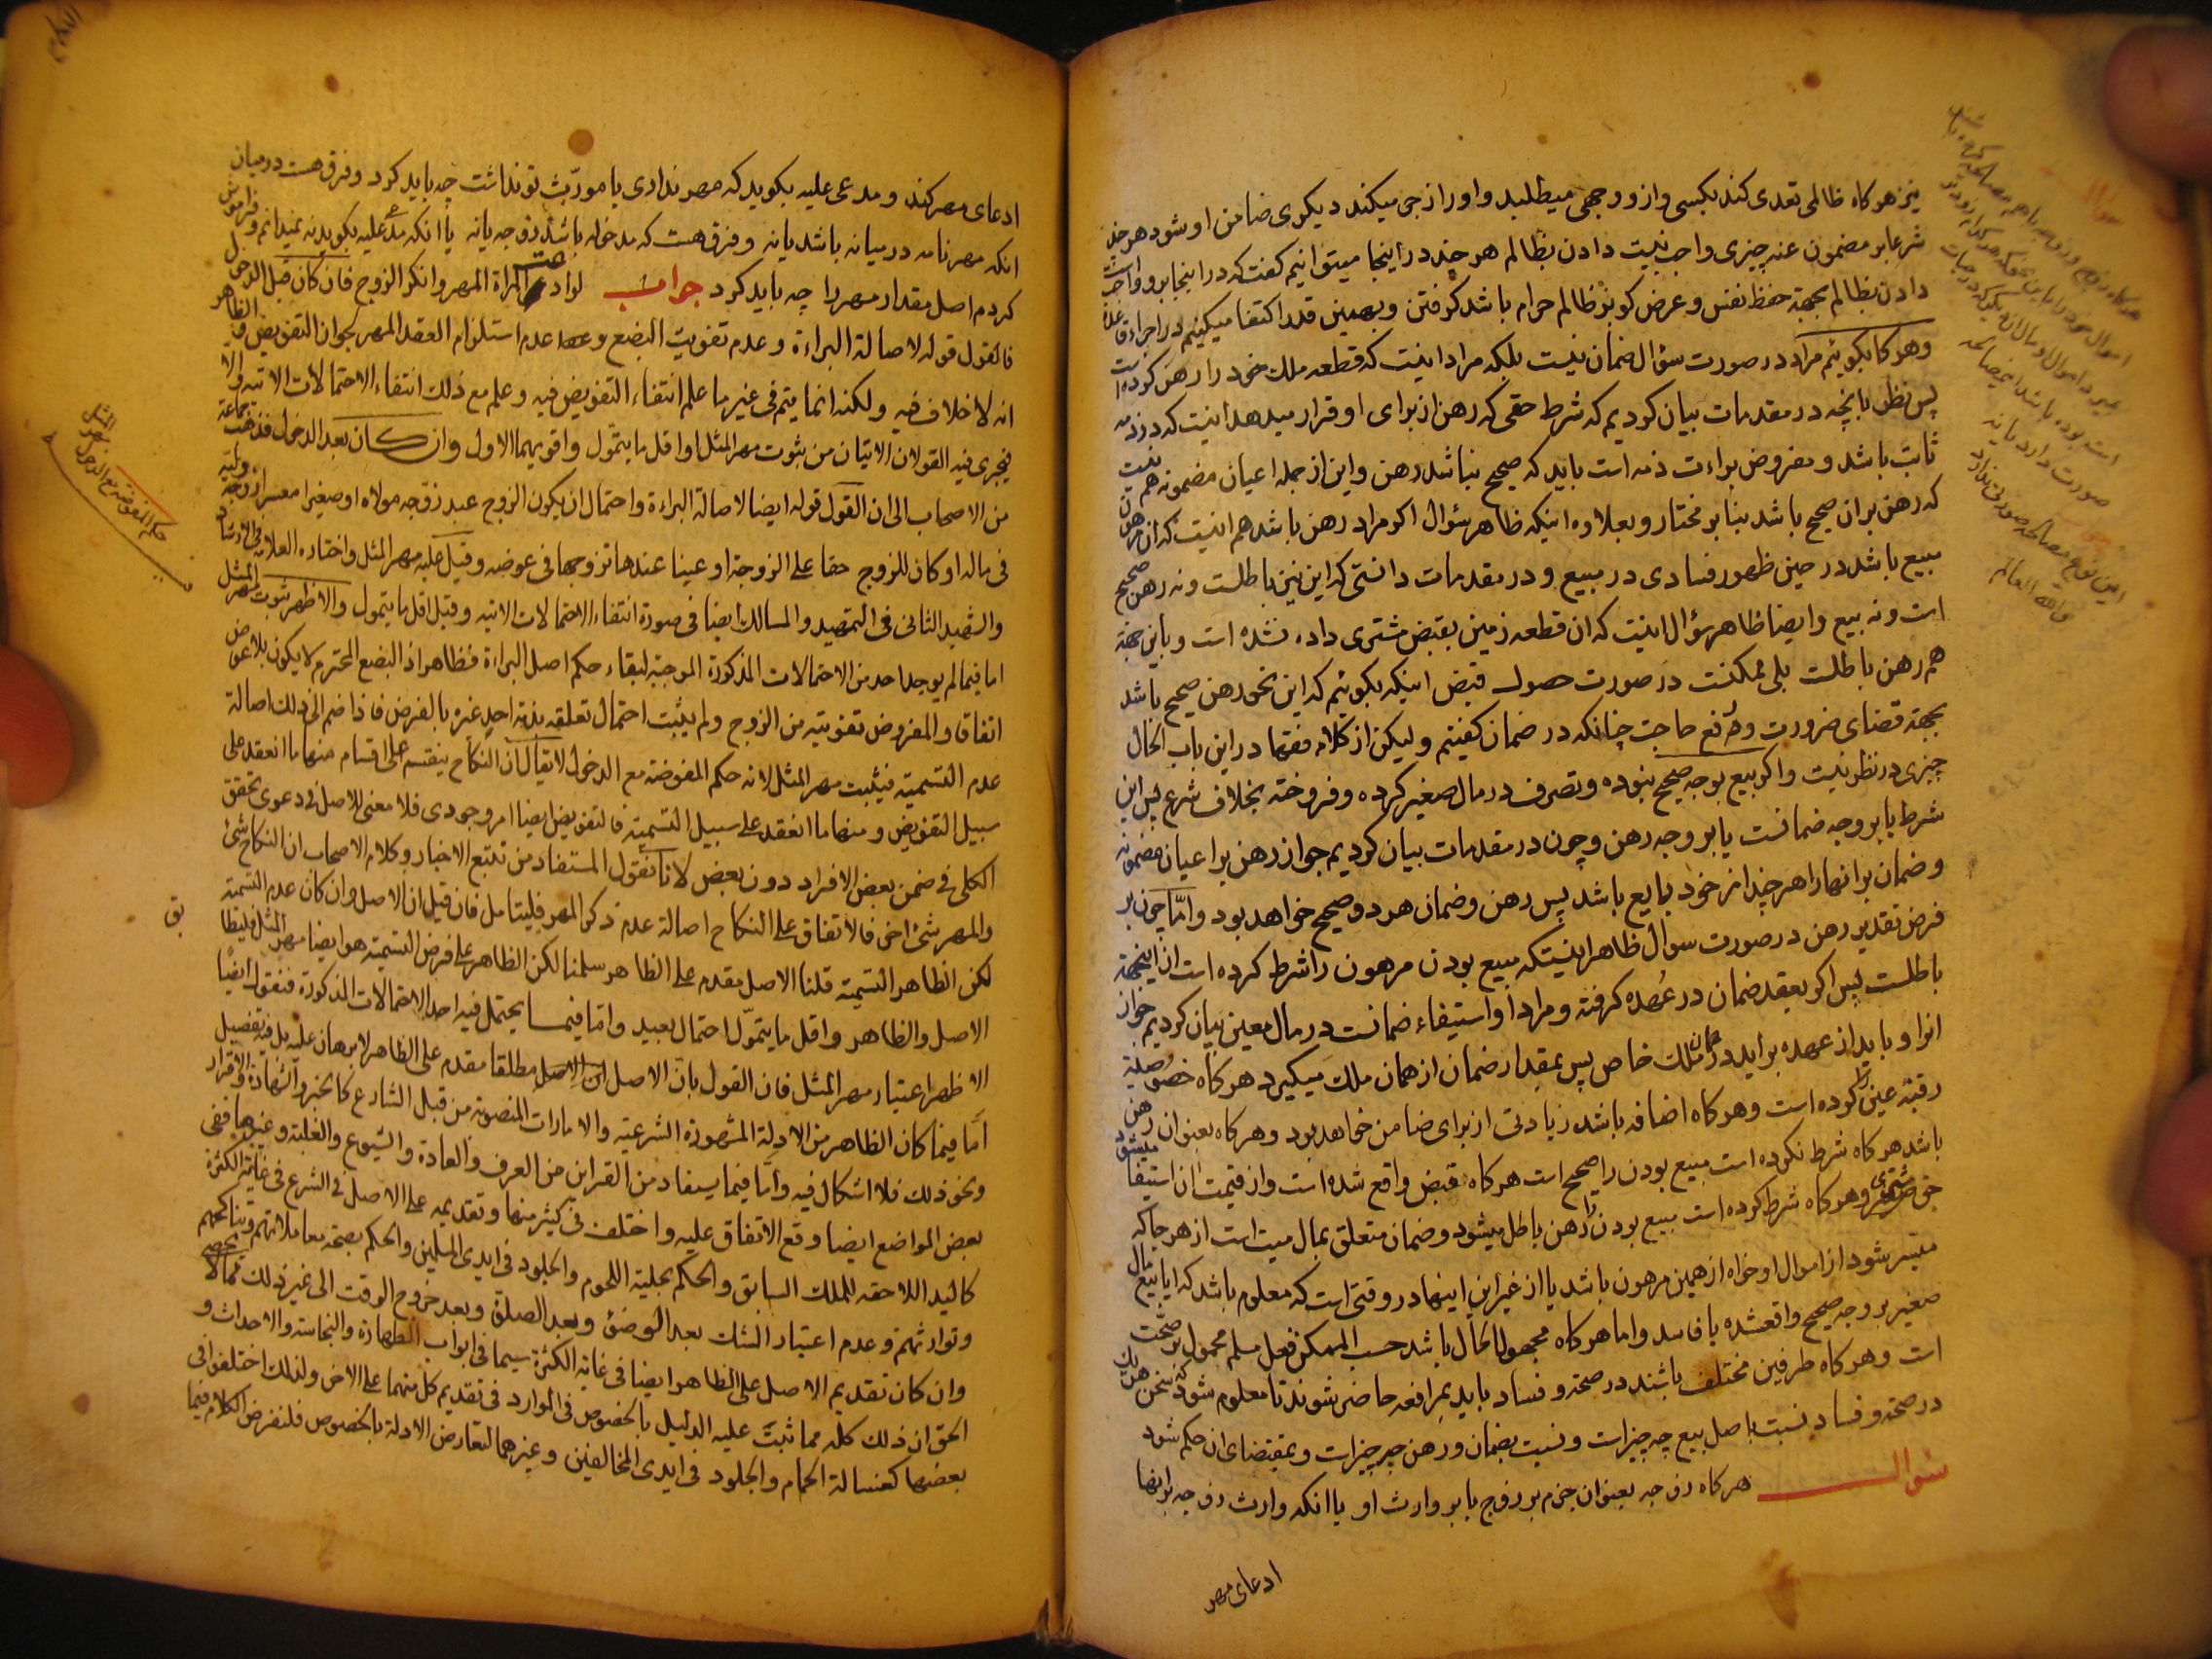 نیز هر کاه ظالمی تعدی کند بکسی و از و وجهی میطلبد و او را زجر میکند دیکری ضامن او شود هر چند
شرعا بر مضمون عنه چیزی واجب نیست دادن بظالم هر چند در اینجا میتوانیم کفت که در اینجا بر او واجب است
دادن بظالم بجهة حفظ نفس و عرض کو بر ظالم حرام باشد کرفتن و بهمین قدر اکتفا میکنیم در اجراء قاعده
و هر کاه بکوئیم مراد در صورت سؤال ضمان نیست بلکه مراد اینست که قطعه ملک خود را رهن کرده است
پس نظر بانچه در مقدمات بیان کردیم که شرط حقی که رهن از برای او قرار میدهد اینست که در ذمه
ثابت باشد و مفروض براءت ذمه است باید که صحیح نباشد رهن و این از جمله اعیان مضمونه هم نیست
که رهن بران صحیح باشد بنا بر مختار و بعلاوه اینکه ظاهر سؤال اکر مراد رهن باشد هم اینست که ان مرهون
مبیع باشد در حین ظهور فسادی در مبیع و در مقدمات دانستی که این نیز باطلست و نه رهن صحیح
است و نه بیع و ایضا ظاهر سؤال اینست که ان قطعه زمین بقبض مشتری داده نشده است و باین جهة
هم رهن باطلست بلی ممکنست در صورت حصول قبض اینکه بکوئیم که این نحو رهن صحیح باشد
بجهة قضای ضرورت و رفع حاجت چنانکه در ضمان کفتیم و لیکن از کلام فقها در این باب الحال
چیزی در نظر نیست و اکر بیع بوجه صحیح نبوده و تصرف در مال صغیر کرده و فروخته بخلاف شرع پس این
شرط یا بر وجه ضمانست یا بر وجه رهن و چون در مقدمات بیان کردیم جواز رهن بر اعیان مضمونه
و ضمان بر انها را هر چند از خود بایع باشد پس رهن و ضمان هر دو صحیح خواهد بود و امّا چون بر
فرض تقدیر رهن در صورت سوال ظاهر اینستکه مبیع بودن مرهون را شرط کرده است از اینجهة
باطلست پس اکر بعقد ضمان در عُهده کرفته و مراد او استیفاء ضمانست در مال معین بیان کردیم جواز
انرا و باید از عهده براید در همان ملک خاص پس بمقدار ضمان از همان ملک میکیرد هر کاه خصوصیة
رقبه عین را کرده است و هر کاه اضافه باشد زیادتی از برای ضامن خواهد بود و هر کاه بعنوان رهن
باشد هر کاه شرط نکرده است مبیع بودن را صحیح است هر کاه قبض واقع شده است و از قیمت ان استیفا میشود
حق مشتری و هر کاه شرط کرده است مبیع بودن را رهن باطل میشود و ضمان متعلق بمال میت است از هر جا که
میسّر شود از اموال او خواه از همین مرهون باشد یا از غیر این اینها در وقتی است که معلوم باشد که ایا بیع مال
صغیر بر وجه صحیح واقعشده یا فاسد و اما هر کاه مجهول الحال باشد حسب الممکن فعل مسلم محمول بر صحّت
است و هر کاه طرفین مختلف باشند در صحة و فساد باید بمرافعه حاضر شوند تا معلوم شود که سخن هر یک
در صحة و فساد نسبت باصل بیع چه چیز است و نسبت بضمان و رهن چه چیز است و بمقتضای ان حکم شود
سؤال هر کاه زوجه بعنوان جزم بر زوج یا بر وارث او یا انکه وارث زوجه بر انها
ادعای مهر
ادعای مهر کنند و مدعی علیه بکوید که مهر نداری یا مورّث تو نداشت چه باید کرد و فرق هست در میان
انکه مهر نامه در میانه باشد یا نه و فرق هست که مدخوله باشد زوجه یا نه یا انکه مدعی علیه بکوید نه نمیدانم و فراموش
کردم اصل مقدار مهر را چه باید کرد جواب لو ادعت المراة المهر و انکر الزوج فان کان قبل الدخول
فالقول قوله لاصالة البراءة و عدم تفویت البضع و عدم استلزام العقد المهر لجواز التفویض و الظاهر
انه لا خلاف فیه و لکنه انما یتم فی غیر ما علم انتفاء التفویض فیه و علم مع ذلک انتفاء الاحتمالات الاتیه و الا
فیجری فیه القولان الاتیان من ثبوت مهر المثل او اقل ما یتموّل و اقویهما الاول و ان کان بعد الدخول فذهب جماعة
من الاصحاب الی ان القول قوله ایضا لاصالة البراءة و احتمال ان یکون الزوج عبد زوّجه مولاه او صغیرا معسرا زوجه ولیه
فی ماله او کان للزوج حقا علی الزوجة او عینا عندها تزوجها فی عوضه و قیل علیه مهر المثل و اختاره العلامه فی الارشاد
و الشهید الثانی فی التمهید و المسالک ایضا فی صورة انتفاء الاحتمالات الاتیه و قیل اقل ما یتمول و الاظهر ثبوت مهر المثل
اما فیما لم یوجد احد من الاحتمالات المذکورة الموجبة لبقاء حکم اصل البراءة فظاهر اذ البضع المحترم لا یکون بلا عوض
اتفاقا و المفروض تفویته من الزوج و لم یثبت احتمال تعلقه بذمة احد غیره بالفرض فاذا ضم الی ذلک اصالة
عدم التسمیة فیثبت مهر المثل لانه حکم المفوضة مع الدخول لا یقال ان النکاح ینقسم علی اقسام منها ما انعقد علی
سبیل التفویض و منها ما انعقد علی سبیل التسمیة فالتفویض ایضا امر وجودی فلا معنی للاصل فی دعوی تحقق
الکلی فی ضمن بعض الافراد دون بعض لانا نقول المستفاد من تتبع الاخبار و کلام الاصحاب ان النکاح شئ
و المهر شئ اخر فالاتفاق علی النکاح اصالة عدم ذکر المهر فلیتامل فان قیل ان الاصل و ان کان عدم التسمیة
لکن الظاهر التسمیة قلنا الاصل مقدم علی الظاهر سلمنا لکن الظاهر علی فرض التسمیة هو ایضا مهر المثل فلیطابق
الاصل و الظاهر و اقل ما یتموّل احتمال بعید و امّا فیما یحتمل فیه احد الاحتمالات المذکورة فنقول ایضًا
الاظهر اعتبار مهر المثل فان القول بانّ الاصل مطلقا مقدم علی الظاهر لا برهان علیه بل فیه تفصیل
امّا فیما کان الظاهر من الادلة المشهورة الشرعیة و الامارات المنصوبة من قبل الشارع کالخبر و الشهادة و الاقرار
و نحو ذلک فلا اشکال فیه و امّا فیما یستفاد من القراین من العرف و العادة و الشیوع و الغلبة و غیرها ففی
بعض المواضع ایضا وقع الاتفاق علیه و اختلف فی کثیر منها و تقدیمه علی الاصل فی الشرع فی غایة الکثرة
کالید اللاحقه للملک السابق و الحکم بحلیة اللحوم و الجلود فی ایدی المسلمین و الحکم بصحة معاملاتهم و مناکحهم
و توارثهم و عدم اعتبار الشک بعد الوضؤ و بعد الصلوة و بعد خروج الوقت الی غیر ذلک مما لا یحصی
و ان کان تقدیم الاصل علی الظاهر ایضا فی غایة الکثرة سیما فی ابواب الطهارة و النجاسة و الاحداث و
الحق ان ذلک کله مما ثبت علیه الدلیل بالخصوص فی الموارد فی تقدیم کل منهما علی الاخر و لذلک اختلفوا فی
بعضها کغسالة الحمام و الجلود فی ایدی المخالفین و غیرهما لتعارض الادلة بالخصوص فلنفرض الکلام فیما
حکم المفوضة مع الدخول مهر المثل